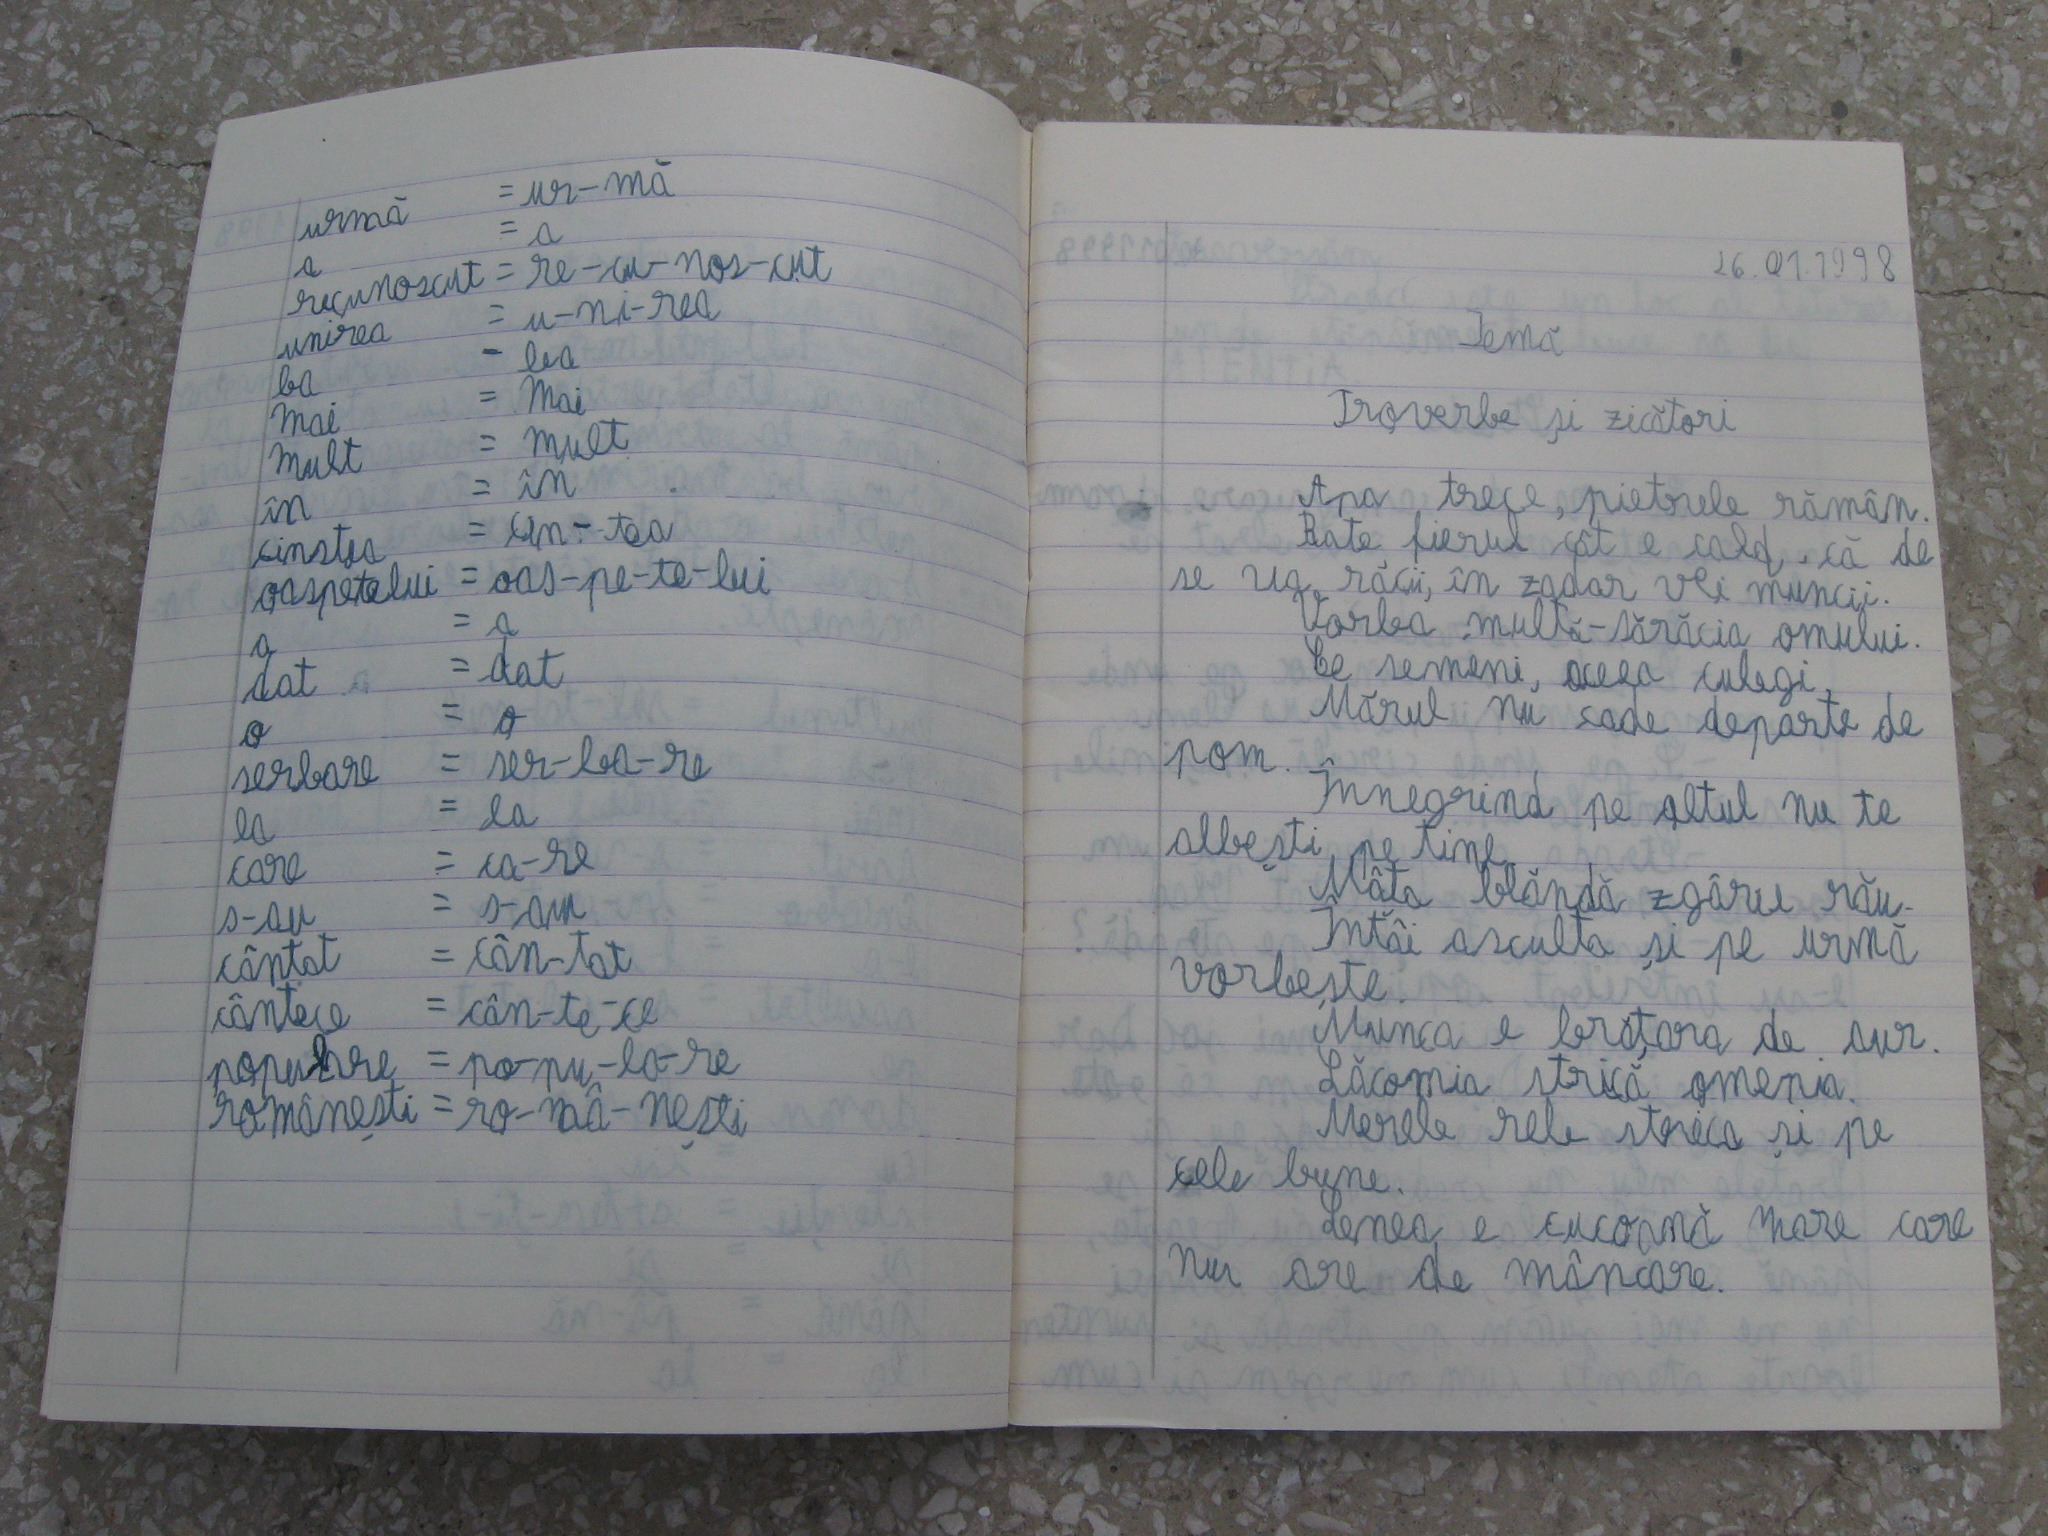 urmă = ur-mă
a = a
recunoscut = re-cu-nos-cut
unirea = u-ni-rea
ba - ba
Mai = Mai
Mult = Mult
în = în
cinstea = cin-tea
oaspetelui = oas-pe-te-lui
a = a
dat = dat
o = o
serbare = ser-ba-re
la = la
care = ca-re
s-au = s-au
cântat = cân-tat
cântece = cân-te-ce
populare = po-pu-la-re
românești = ro-mâ-nești
26.01.1998
Temă
Proverbe și zicători
Apa trece, pietrele rămân.
Bate fierul cât e cald, că de
se va răcii, în zadar vei muncii.
Vorba multă-sărăcia omului.
Ce semeni, aceea culegi.
Mărul nu cade departe de
pom.
Înnegrind pe altul nu te
albești pe tine
Mâta blândă zgârie rău.
Întâi asculta și pe urmă
vorbește.
Munca e brățara de aur.
Lăcomia strică omenia.
Merele rele strica și pe
cele bune.
Lenea e cucoană mare care
nu are de mâncare.